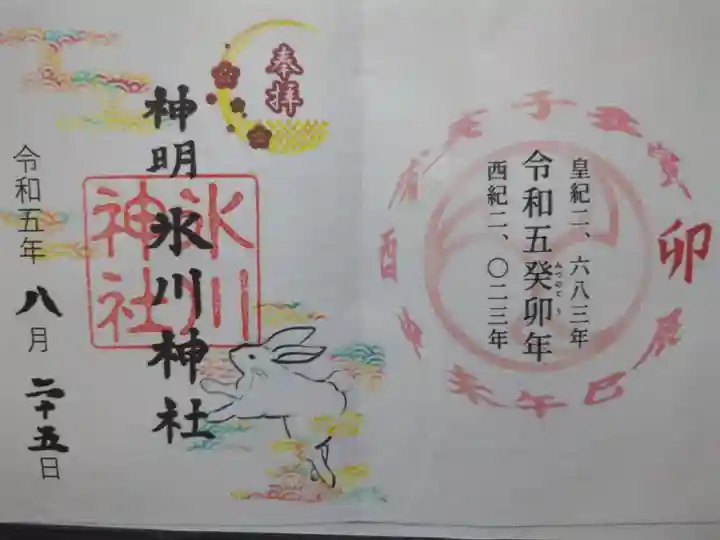 皇紀二、六八三年
令和五癸卯年
みずのとう
西紀二、〇二三年
子
丑
寅
卯
辰
巳
午
未
申
酉
戌
亥
奉拝
神明氷川神社
氷川
神社
令和五年八月二十五日